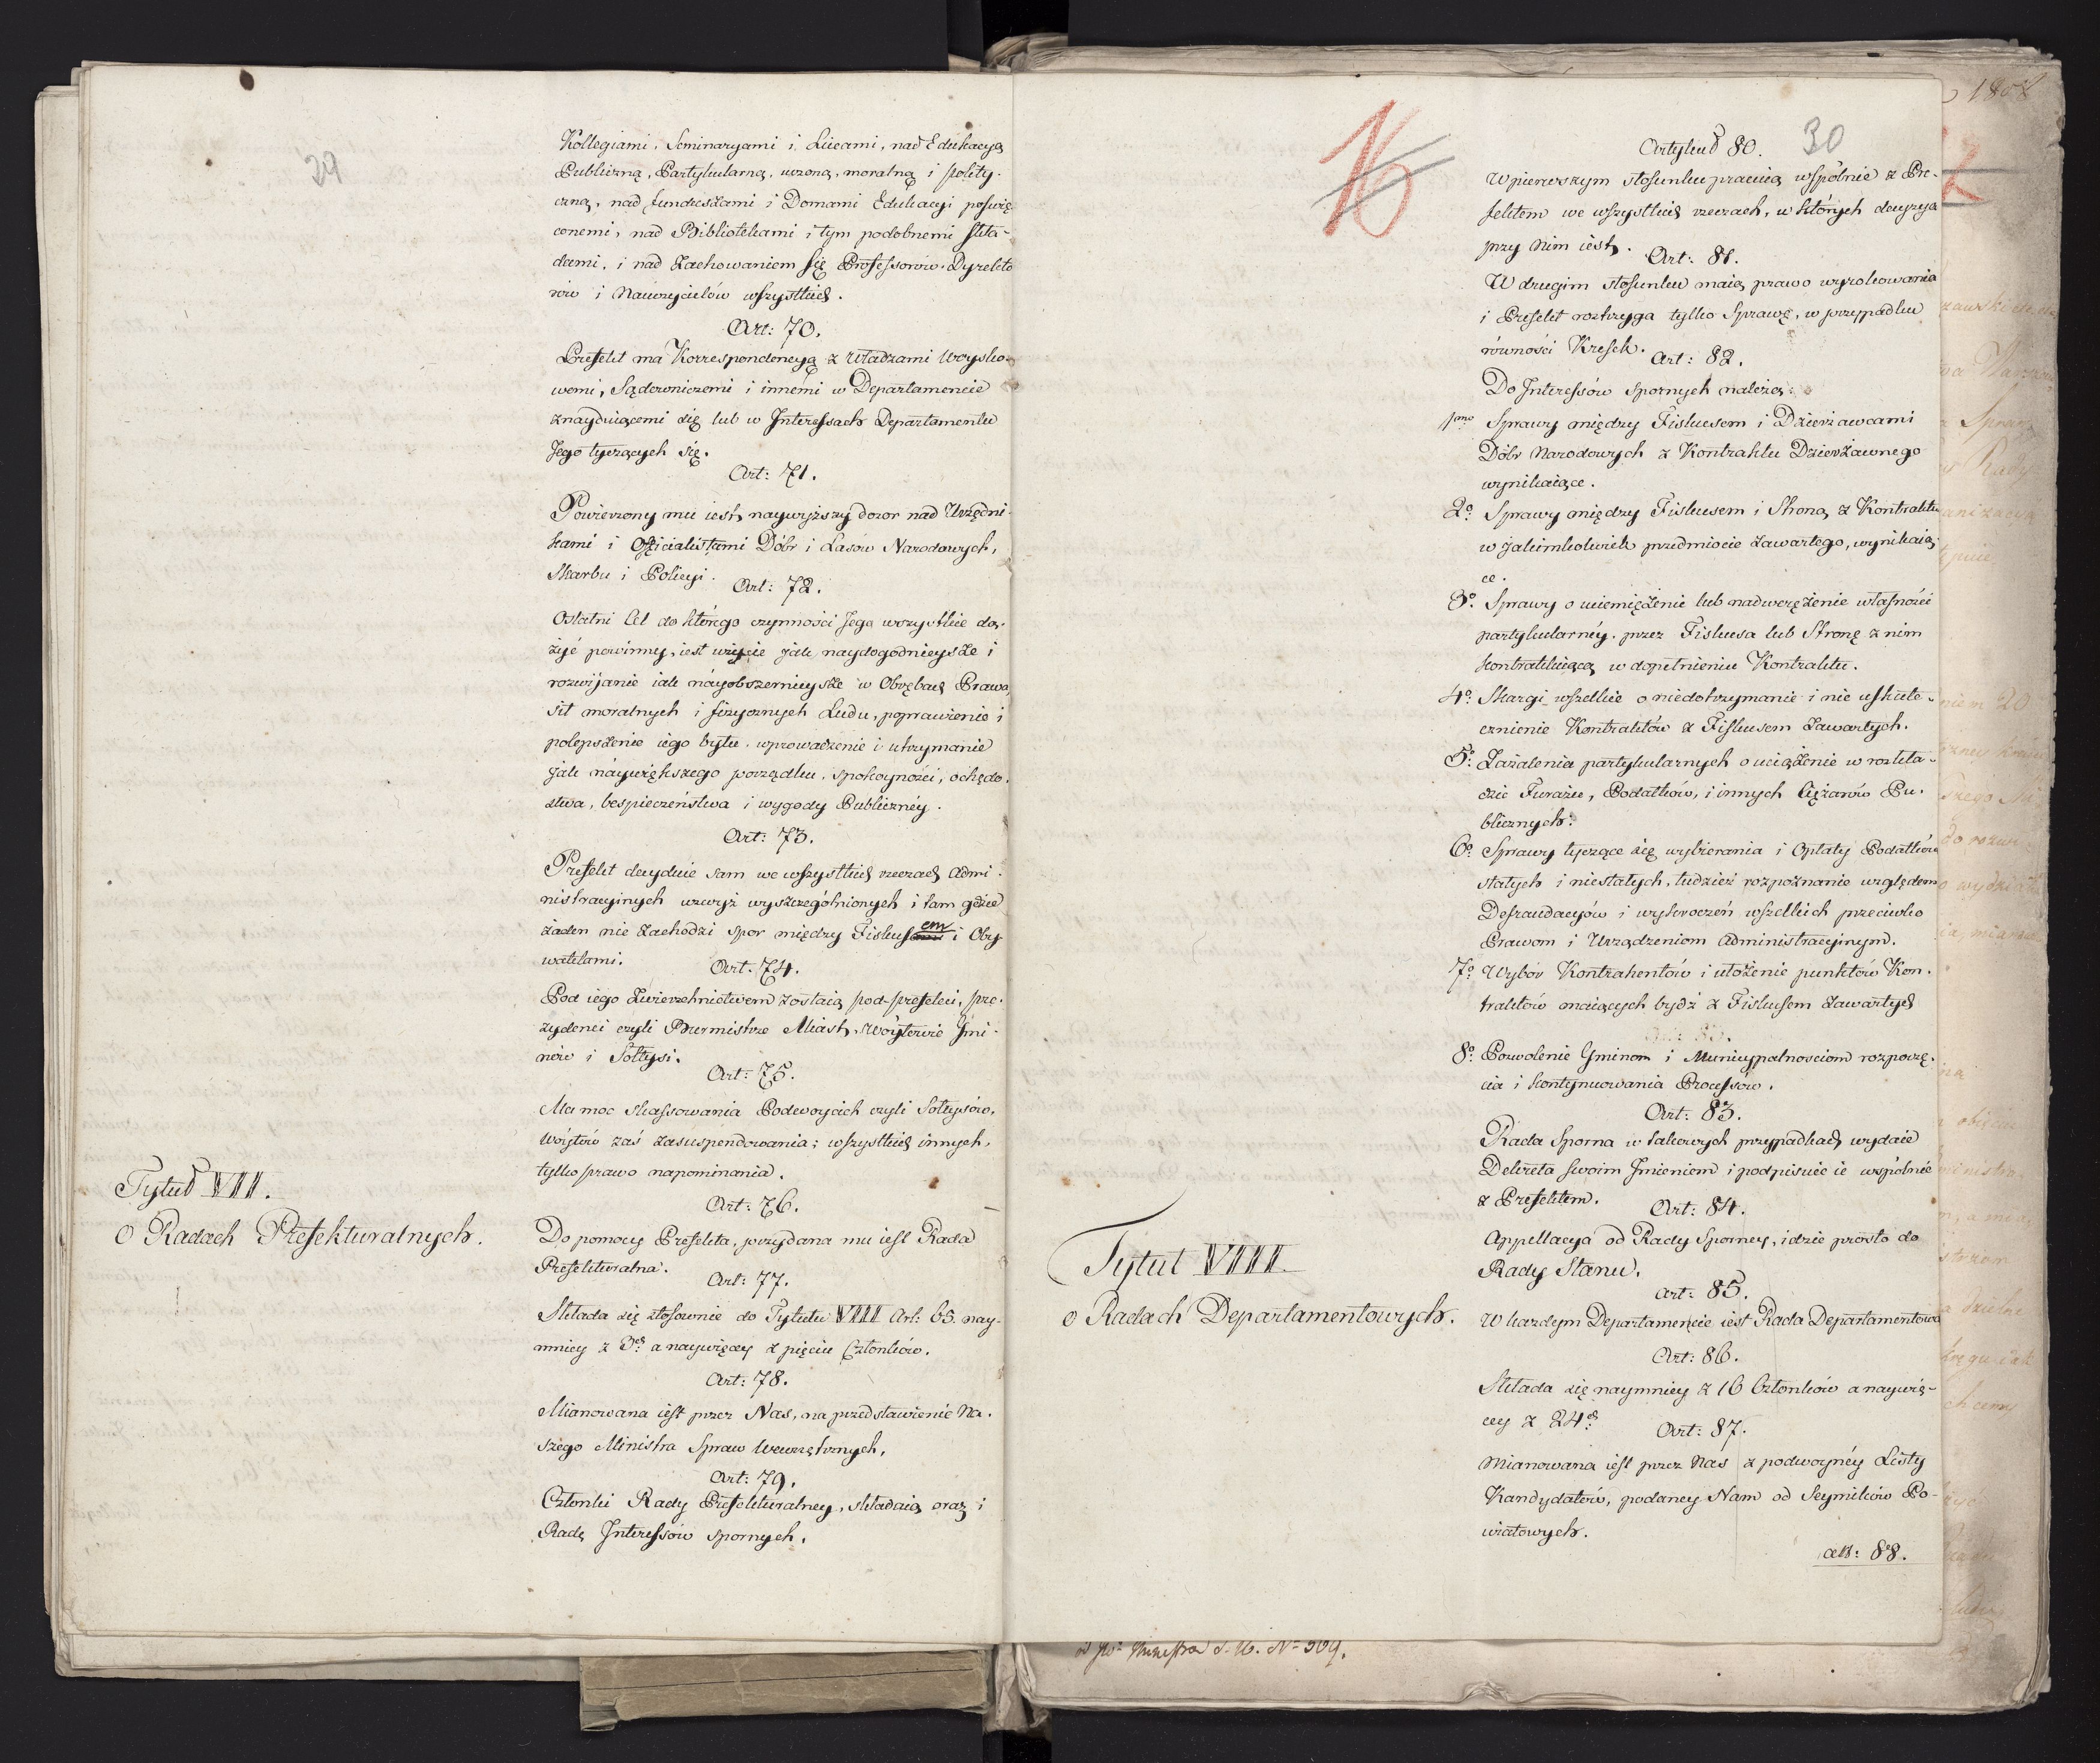 29
Kollegiami, Seminaryami i Liceami, nad Edukacyą
Publiczną, Partykularną, uczoną, moralną i polity-
czną, nad funduszami i Domami Edukacyi poświę
conemi, nad Bibliotekami i tym podobnemi skła-
dami, i nad zachowaniem się Professorów. Dyrekto
rów i Nauczycielów wszystkich.
Art: 70.
Prefekt ma Korrespondencyą z Władzami Woysko-
wemi, Sądowniczemi i innemi w Departamencie
znayduiącemi się lub w Interessach Departamentu
Jego tyczących się.
Art: 71.
Powierzony mu iest naywyższy dozor nad Urzędni-
kami i Officialistami Dóbr i Lasów Narodowych,
Skarbu i Policyi.
Art: 72.
Ostatni Cel do którego czynności Jego wszystkie dą-
żyć powinny, iest użycie jak naydogodnieysze i
rozwijanie iak náyobszernieysze w Obrębach Prawa,
sił moralnych i fizycznych Ludu, poprawienie i
polepszenie iego bytu, wprowadzenie i utrzymanie
jak náywiększego porządku, spokoyności, ochędo-
stwa, bespieczeństwa i wygody Publicznéy.
Art: 73.
Prefekt decyduie sam we wszystkich rzeczach Admi-
nistracyinych wzwyż wyszczególnionych i tam gdzie
żaden nie zachodzi spor między Fiskusem i Oby
watelami.
Art. 74.
Pod iego zwierzchnictwem zostaią pod-prefekci, pre-
zydenci czyli Burmistrze Miast, Wóytowie Gmi-
nów i Sołtysi.
Art: 75.
Ma moc skassowania Podwoycich czyli Sołtysów,
Wóytów zaś zasuspendowania; wszystkich innych,
tylko prawo napominania.
Tytuł VII.
O Radach Prefekturalnych.
Art: 76.
Do pomocy Prefekta, przydana mu iest Rada
Prefekturalna.
Art: 77.
Składa się stosownie do Tytułu VIII Art: 65. nay-
mniey z 3ch a naywięcey z pięciu Członków.
Art: 78.
Mianowana iest przez Nas, na przedstawienie Na-
szego Ministra Spraw Wewnętrznych.
Art: 79.
Członki Rady Prefekturalney, składaią oraz i
Radę Interessów spornych.
16
30
Artykuł 80.
W pierwszym stosunku pracuią wspólnie z Pre-
fektem we wszystkich rzeczach, w których decyzya
przy Nim iest.
Art: 81.
W drugim stosunku maią prawo wyrokowania
i Prefekt roztrzyga tylko Sprawę, w przypadku
równości Kresek.
Art: 82.
Do Interessów spornych należą:
1mo Sprawy między Fiskusem i Dzierżawcami
Dóbr Narodowych z Kontraktu Dzierżawnego
wynikaiące.
2o Sprawy między Fiskusem i Stroną z Kontraktu
w jakimkolwiek przedmiocie zawartego, wynikaią-
ce.
3o Sprawy o uciemiężenie lub nadwerężenie własności
partykularnéy, przez Fiskusa lub Stronę z nim
kontraktuiącą w dopełnieniu Kontraktu.
4o Skargi wszelkie o niedotrzymanie i nie uskute-
cznienie Kontraktów z Fiskusem zawartych.
5o Zażalenia partykularnych o uciążenie w rozkła-
dzie Furażu, Podatków, i innych Ciężarów Pu-
blicznych.
6o Sprawy tyczące się wybierania i Opłaty Podatków
stałych i niestałych, tudzież rozpoznanie względem
Defraudacyów i wykroczeń wszelkich przeciwko
Prawom i Urządzeniom Administracyinym.
7o Wybór Kontrahentów i ułożenie punktów Kon-
traktów maiących bydź z Fiskusem zawartych
8o Pozwolenie Gminom i Municypalnościom rozpoczę-
cia i kontynuowania Processów.
Art: 83.
Rada Sporna w takowych przypadkach wydaie
Dekreta swoim Imieniem i podpisuie ie wspólnie
z Prefektem.
Art: 84.
Appellacya od Rady Sporney, idzie prosto do
Rady Stanu.
Tytuł VIII.
O Radach Departamentowych.
Art: 85.
W każdym Departamencie iest Rada Departamentowa
Art: 86.
Składa się naymniey z 16 Członków a naywię-
cey z 24ch
Art: 87.
Mianowana iest przez Nas z podwoynéy Listy
Kandydatów, podaney Nam od Seymików Po-
wiatowych.
Art: 88.
1808
Ministra S. W. No 509.